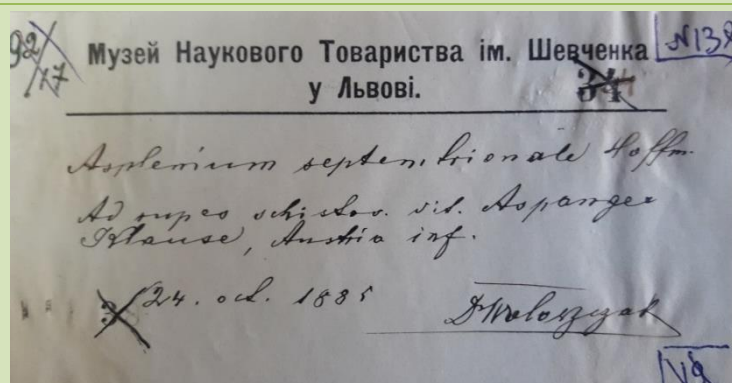 92/77
Музей Наукового Товариства ім. Шевченка
у Львові.
34
Asplenium septentrionale Hoffm.
Ad rupes schistos. vit. Aspanger
Klause, Austria inf.
24. oct. 1885
Dr Wołoszczak